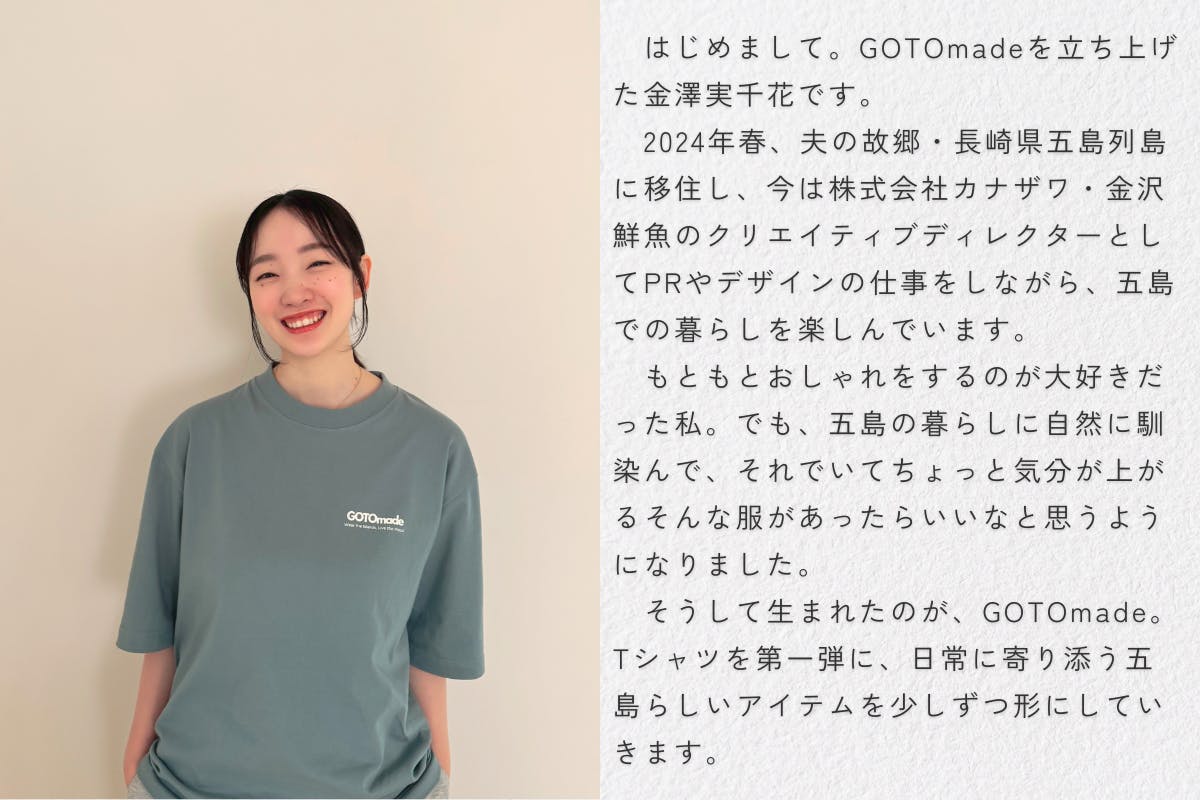 GOTOmade
はじめまして。GOTOmadeを立ち上げ
た金澤実千花です。
2024年春、夫の故郷・長崎県五島列島
に移住し、今は株式会社カナザワ・金沢
鮮魚のクリエイティブディレクターとし
てPRやデザインの仕事をしながら、五島
での暮らしを楽しんでいます。
もともとおしゃれをするのが大好きだ
った私。でも、五島の暮らしに自然に馴
染んで、それでいてちょっと気分が上が
るそんな服があったらいいなと思うよう
になりました。
そうして生まれたのが、GOTOmade。
Tシャツを第一弾に、日常に寄り添う五
島らしいアイテムを少しずつ形にしてい
きます。